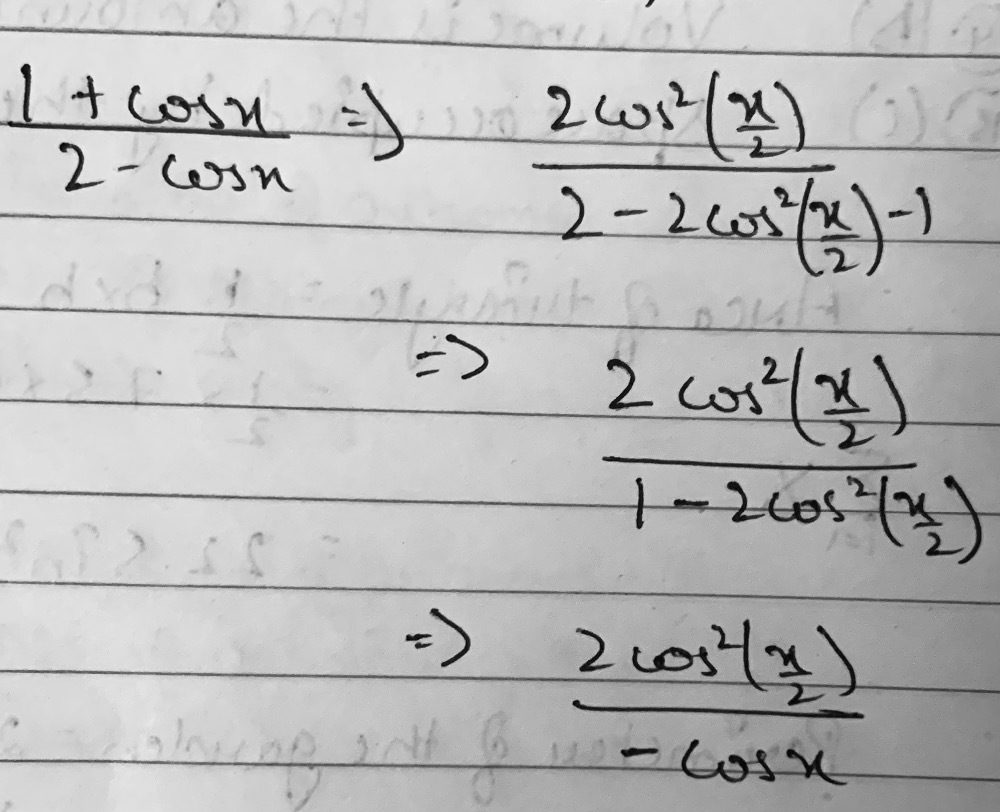 1 + cosx / 2 - cosx => 2cos²(x/2) / 2 - 2cos²(x/2) - 1
=> 2 cos²(x/2) / 1 - 2cos²(x/2)
=> 2cos²(x/2) / - cosx